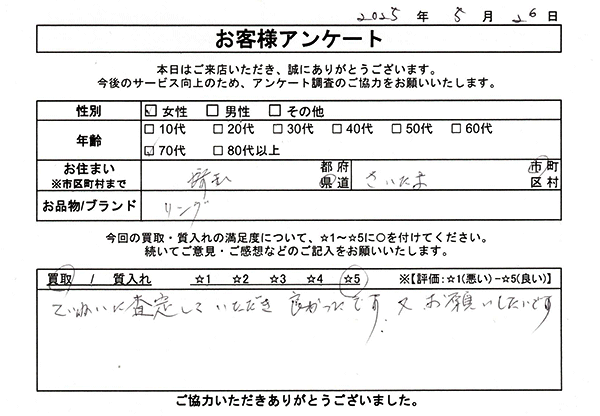 2025 年 5 月 26 日
お客様アンケート
本日はご来店いただき、誠にありがとうございます。
今後のサービス向上のため、アンケート調査のご協力をお願いいたします。
性別 ☑ 女性 □ 男性 □ その他
年齢 □ 10代 □ 20代 □ 30代 □ 40代 □ 50代 □ 60代
☑ 70代 □ 80代以上
お住まい 埼玉 都 府 さいたま 市 町
※市区町村まで 県 道 区 村
お品物/ブランド リング
今回の買取・質入れの満足度について、☆1～☆5に○を付けてください。
続いてご意見・ご感想などのご記入をお願いいたします。
買取 / 質入れ ☆1 ☆2 ☆3 ☆4 ☆5 ※【評価:☆1(悪い)－☆5(良い)】
ていねいに査定していただき 良かったです 又お願いしたいです
ご協力いただきありがとうございました。